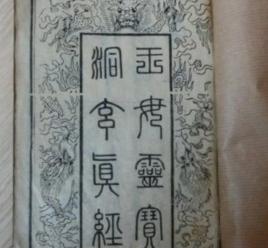 玉世靈寶
洞玄眞經